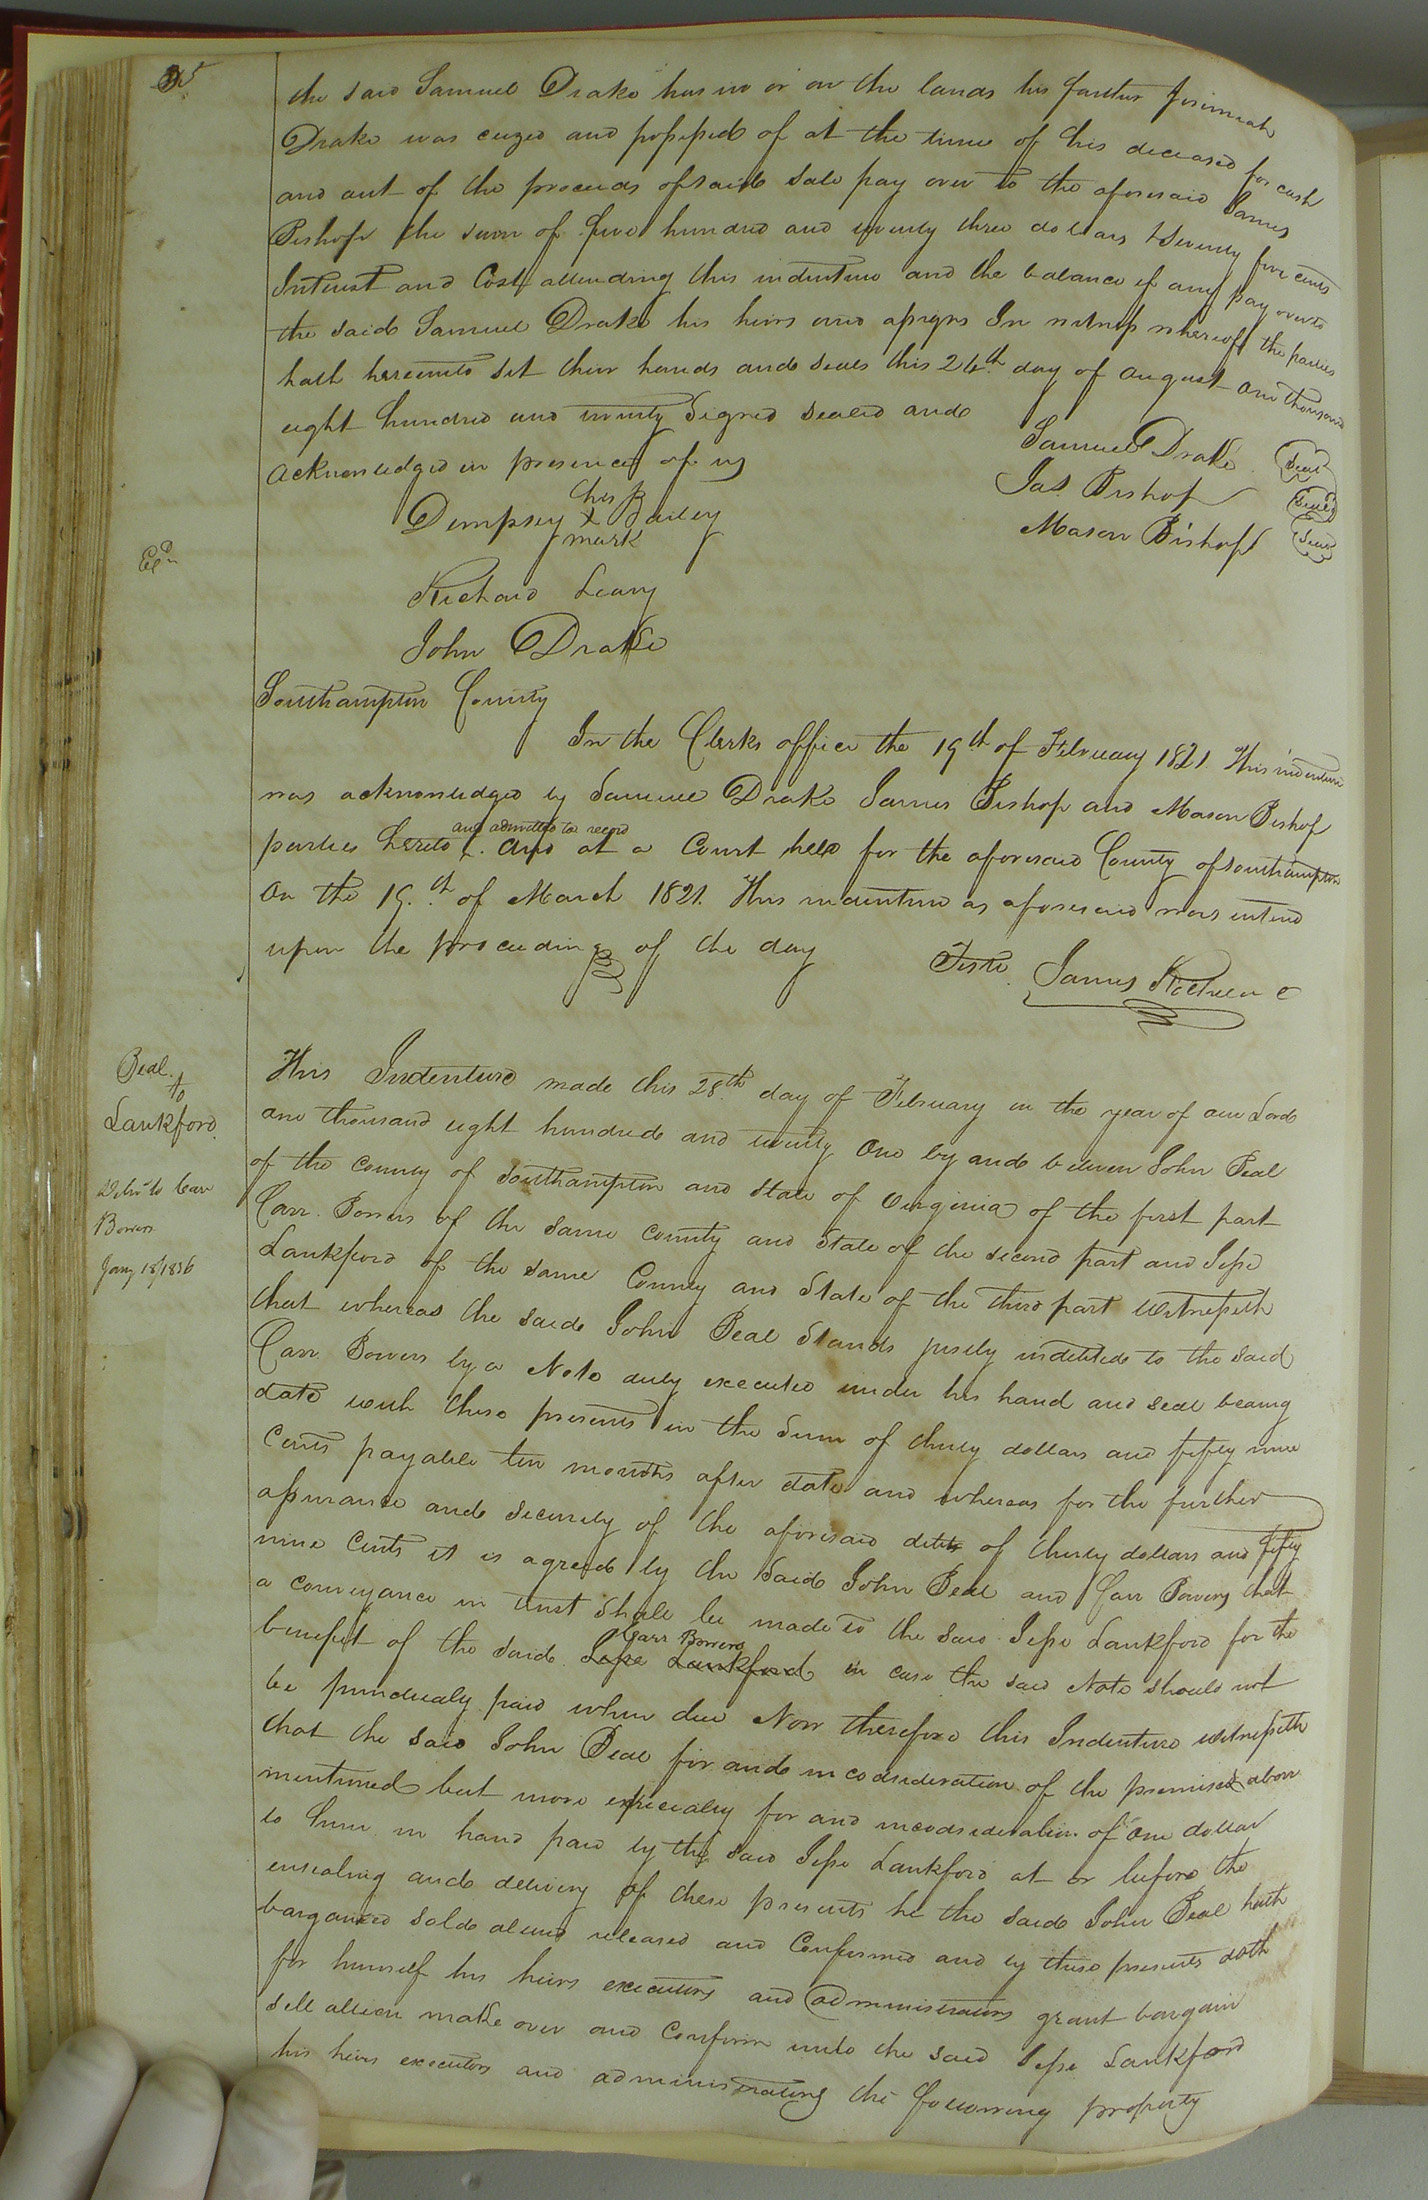 the said Samuel Drake has in or on the lands his father Jeremiah
Drake was ceized and possessed of at the time of his deceased for cash
and out of the proceeds of said sale pay over to the aforesaid James
Bishop the sum of five hundred and twenty three dollars & seventy five cents
Interest and Cost attending this indenture and the balance if any pay over to
the said Samuel Drake his heirs and assigns In witness whereof the parties
hath hereunto set their hands and seals this 24th day of august one thousand
eight hundred and twenty Signed sealed and
acknowledged in presence of us
Samuel Drake Seal
Jas. Bishop Seal
Mason Bishop Seal
his
Dempsey X Bailey
mark
Exd.
Richard Leary
John Drake
Southampton County
In the Clerks office the 19th of February 1821. This indenture
was acknowledged by Samuel Drake James Bishop and Mason Bishop
and admitted to record
parties hereto ^. And at a Court held for the aforesaid County of Southampton
On the 19.th of March 1821. This indenture as aforesaid was entered
upon the proceedings of the day
Teste James Rochelle C
Beal
to
Lankford
Deld to Carr
Bowers
Jany 18/1836
This Indenture made this 28th day of February in the year of our Lord
one thousand eight hundred and twenty One by and between John Beal
of the county of Southampton and State of Virginia of the first part
Carr Bowers of the same county and State of the second part and Jesse
Lankford of the same County and State of the third part Witnesseth
that whereas the said John Beal Stands justly indebted to the said
Carr Bowers by a Note duly executed under his hand and seal bearing
date with these presents in the Sum of thirty dollars and fifty nine
Cents payable ten months after date and whereas for the further
assurance and security of the aforesaid debt of thirty dollars and fifty
nine Cents it is agreed by the Said John Beal and Carr Bowers that
a conveyance in trust Shall be made to the said Jesse Lankford for the
Carr Bowers
benefit of the said Jesse Lankford in case the said Note should not
be punctualy paid when due Now therefore this Indenture witnesseth
that the said John Beal for and in consideration of the premises above
mentioned but more especially for and in consideration of One dollar
to him in hand paid by the said Jesse Lankford at or before the
ensealing and delivery of these presents he the said John Beal hath
bargained sold aliend released and Confirmed and by these presents doth
for himself his heirs executors and administrators grant bargain
sell alien make over and Confirm unto the said Jesse Lankford
his heirs executors and administrators the following property